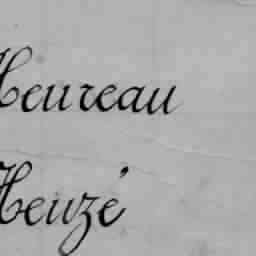 Heureau
Heuzé